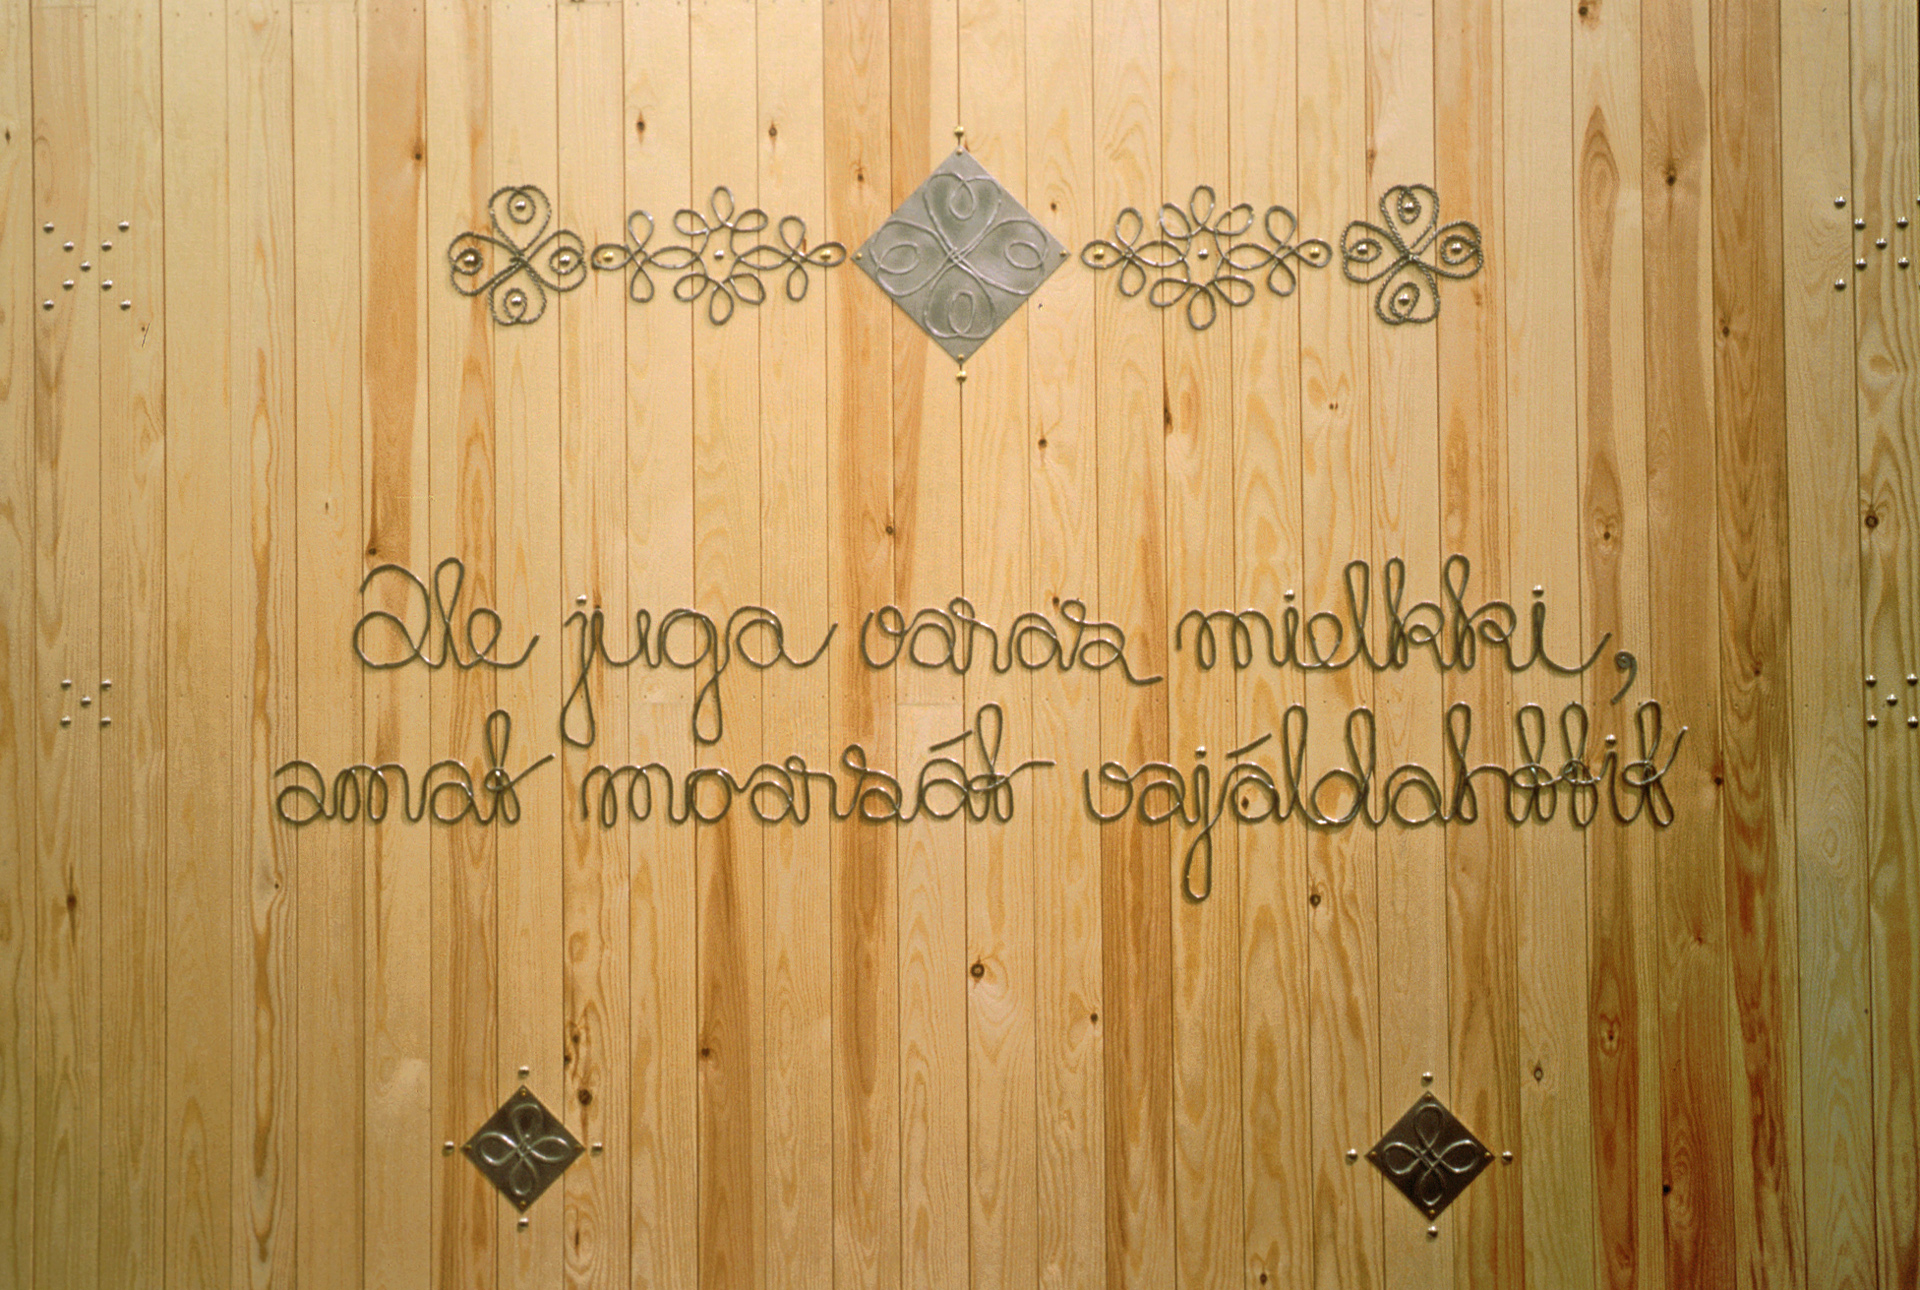 Ale juga varas mielkki,
amat moarsát vajáldahttit